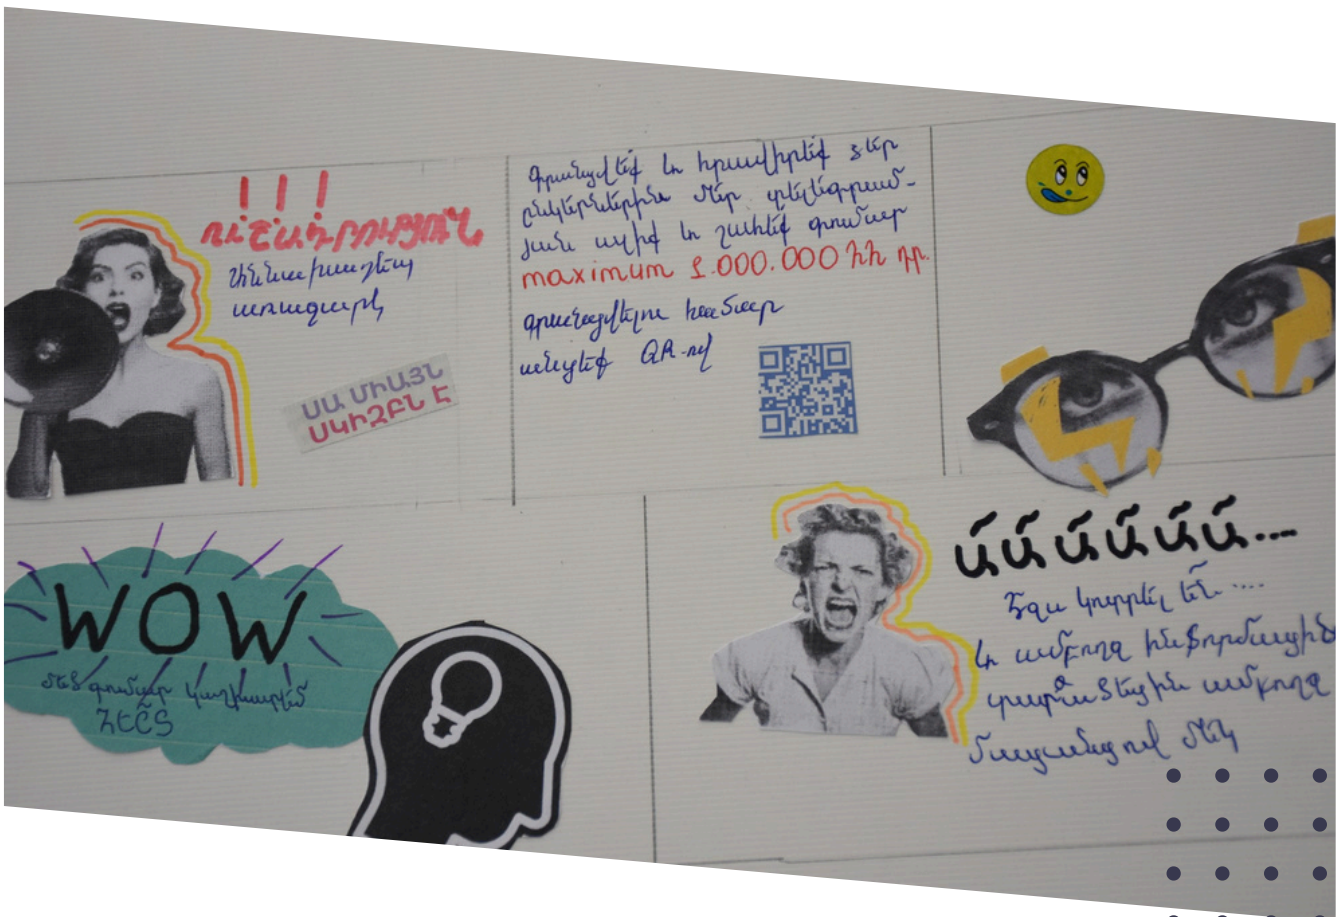 ! ! !
ՈՒՇԱԴՐՈՒԹՅՈՒՆ
Աննախադեպ
առաջարկ
ՍԱ ՄԻԱՅՆ
ՍԿԻԶԲՆ Է
Գրանցվեք և հրավիրեք ձեր
ընկերներին մեր տելեգրամ-
յան ալիք և շահեք գումար
maximum 1.000.000 ՀՀ դր.
գրանցվելու համար
անցեք QR-ով
WOW
մեծ գումար կաշխատեմ
ՀԵՇՏ
Ա՜Ա՜Ա՜Ա՜Ա՜Ա՜....
Էջս կոտրել են....
և ամբողջ ինֆորմացիան
տարածեցին ամբողջ
համացանցով մեկ